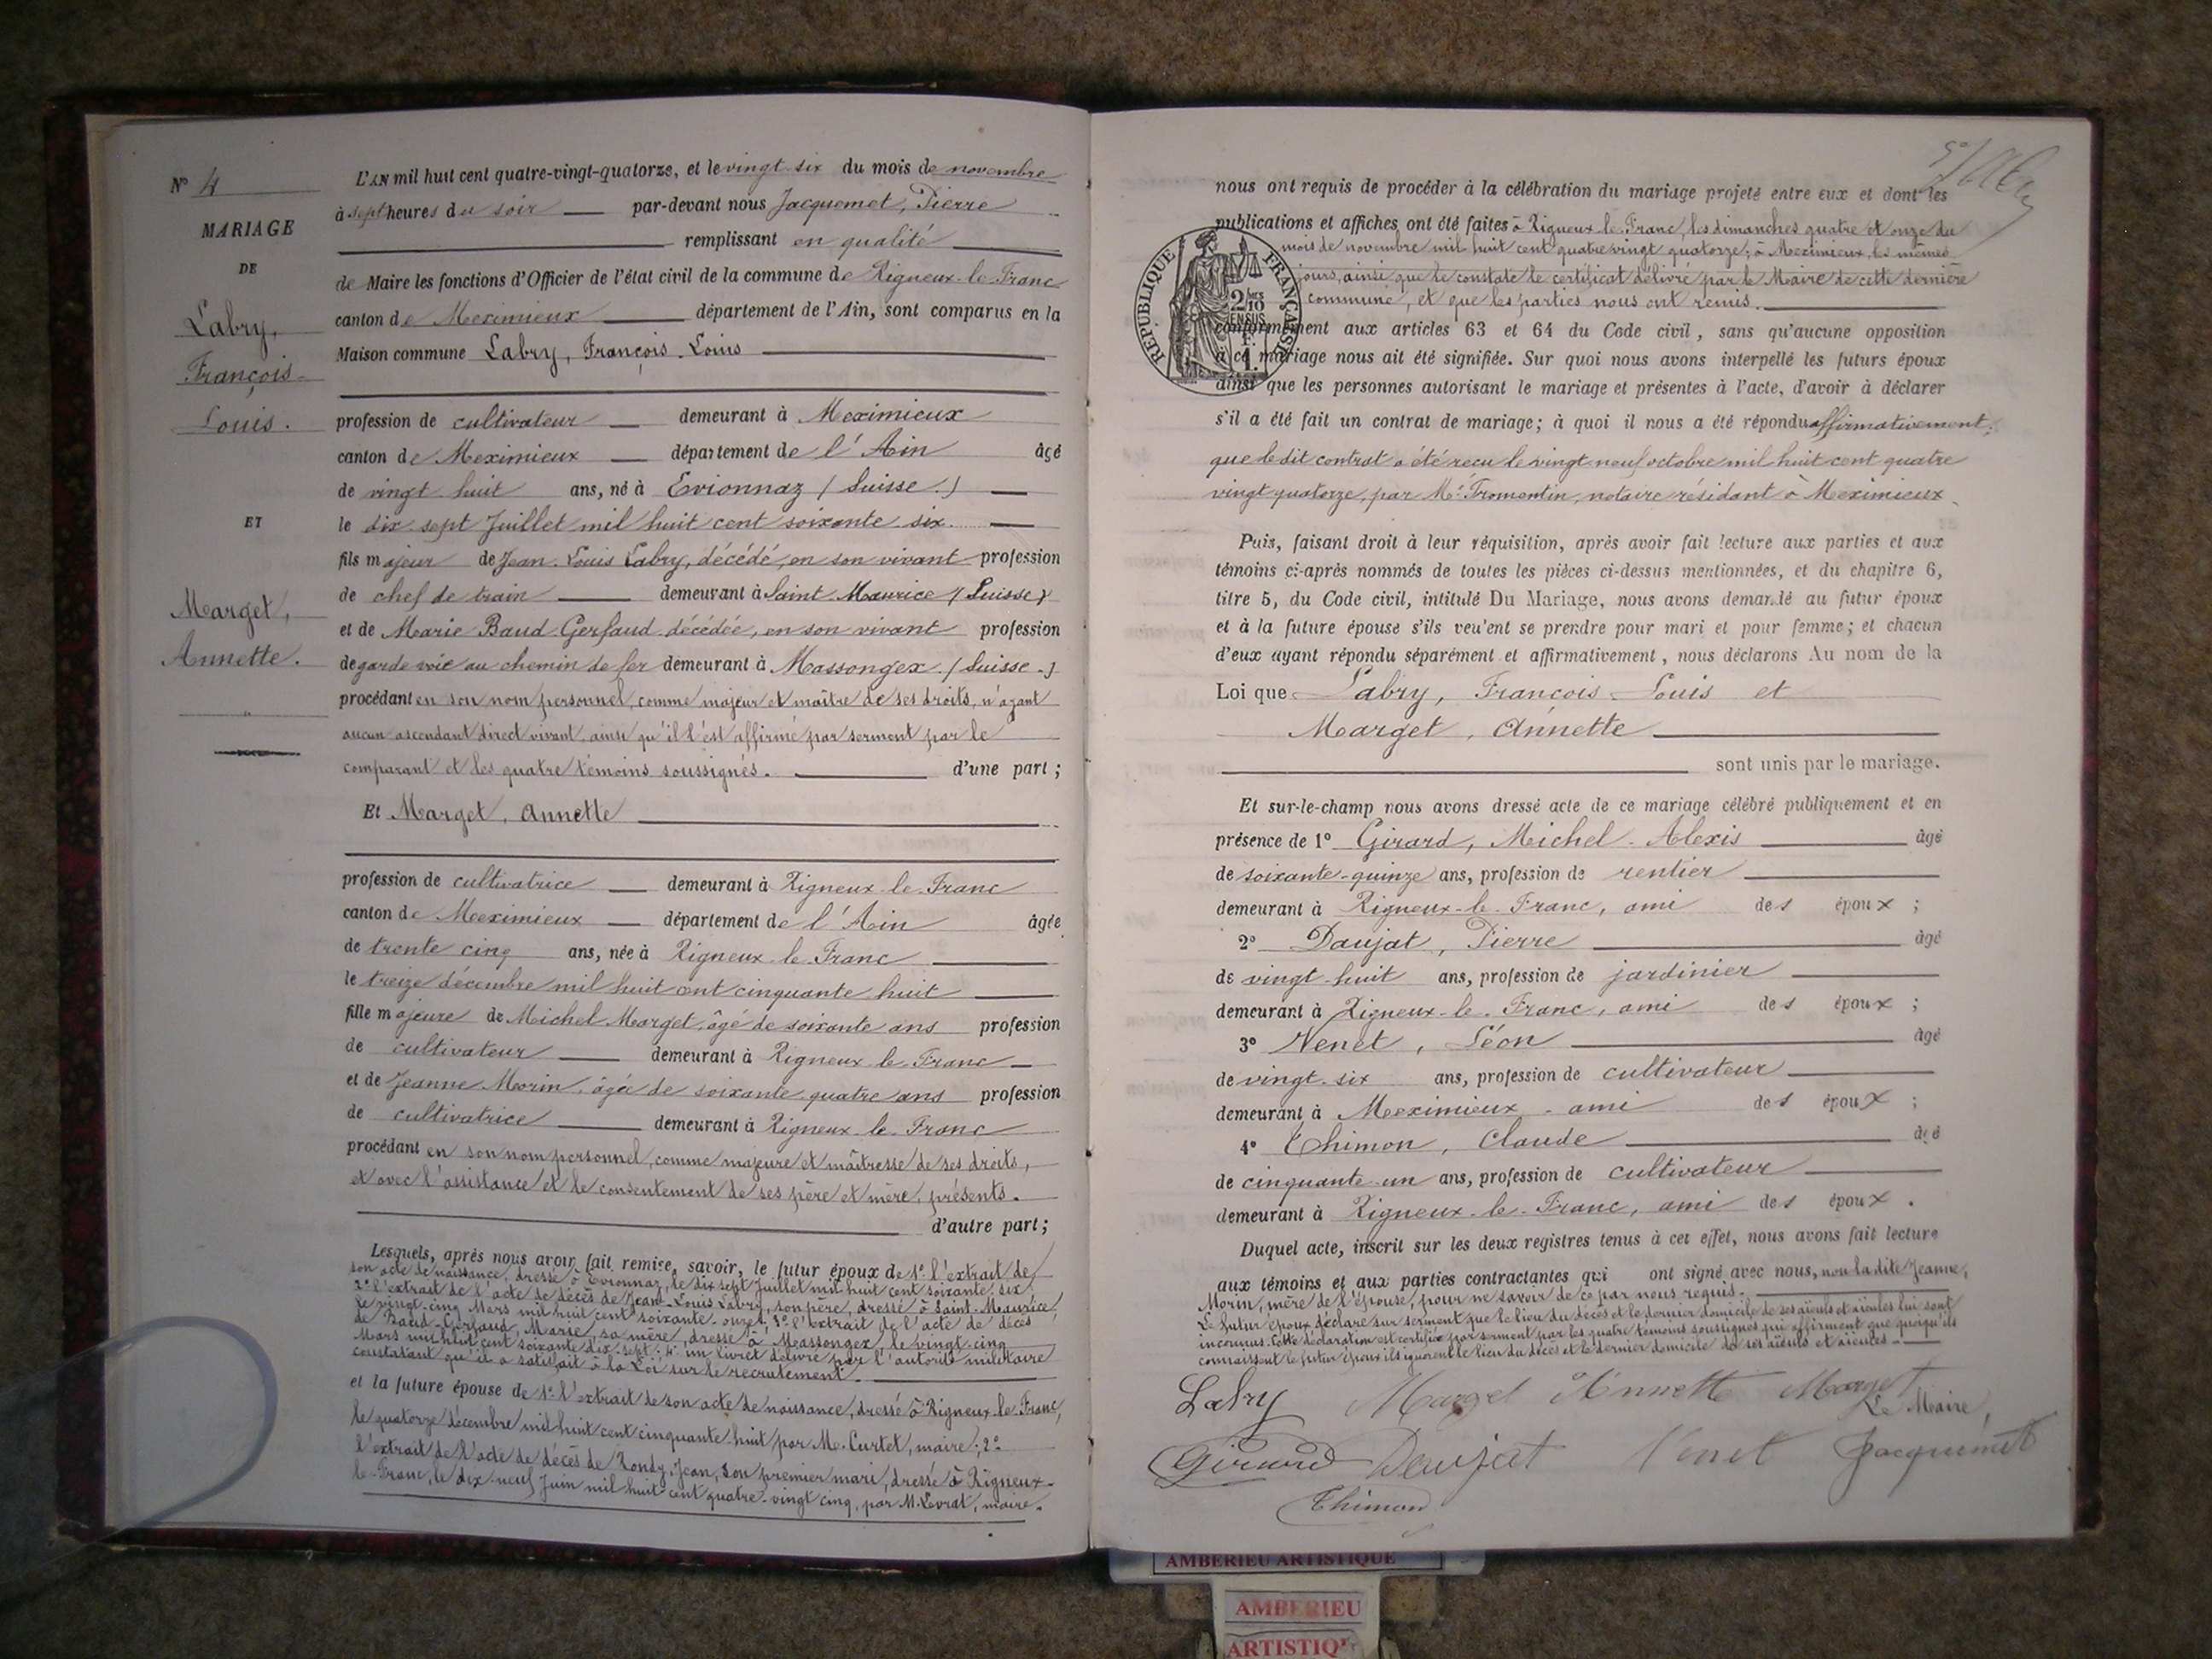 N° 4
MARIAGE
DE
Labry,
François-
Louis.
ET
Marget,
Annette.
L'AN mil huit cent quatre-vingt-quatorze, et le vingt six du mois de novembre
à sept heures du soir par-devant nous Jacquemet, Pierre
remplissant en qualité
de Maire les fonctions d'Officier de l'état civil de la commune de Rigneux-le-Franc
canton de Meximieux département de l'Ain, sont comparus en la
Maison commune Labry, François-Louis
profession de cultivateur demeurant à Meximieux
canton de Meximieux département de l'Ain âgé
de vingt-huit ans, né à Evionnaz (Suisse.)
le dix-sept Juillet mil huit cent soixante-six.
fils majeur de Jean-Louis Labry, décédé, en son vivant profession
de chef de train demeurant à Saint-Maurice (Suisse)
et de Marie Baud-Gerfaud décédée, en son vivant profession
de garde voie au chemin de fer demeurant à Massongex (Suisse.)
procédant en son nom personnel, comme majeur et maître de ses droits, n'ayant
aucun ascendant direct vivant, ainsi qu'il l'est affirmé par serment par le
comparant et les quatre témoins soussignés. d'une part ;
Et Marget, Annette
profession de cultivatrice demeurant à Rigneux-le-Franc
canton de Meximieux département de l'Ain âgée
de trente cinq ans, née à Rigneux-le-Franc
le treize décembre mil huit cent cinquante-huit
fille majeure de Michel Marget, âgé de soixante ans profession
de cultivateur demeurant à Rigneux-le-Franc
et de Jeanne Morin, âgée de soixante-quatre ans profession
de cultivatrice demeurant à Rigneux-le-Franc
procédant en son nom personnel, comme majeure et maîtresse de ses droits,
et avec l'assistance et le consentement de ses père et mère, présents.
d'autre part;
Lesquels, après nous avoir fait remise, savoir, le futur époux de 1° l'extrait de
son acte de naissance, dressé à Evionnaz, le dix-sept Juillet mil huit cent soixante-six;
2° l'extrait de l'acte de décès de Jean-Louis Labry, son père, dressé à Saint-Maurice,
le vingt-cinq Mars mil huit cent soixante-onze; 3° l'extrait de l'acte de décès
de Baud-Gerfaud, Marie, sa mère, dressé à Massongex, le vingt-cinq
Mars mil huit cent soixante dix-sept; 4° un livret délivré par l'autorité militaire
constatant qu'il a satisfait à la Loi sur le recrutement.
et la future épouse de 1° l'extrait de son acte de naissance, dressé à Rigneux-le-Franc,
le quatorze décembre mil huit cent cinquante-huit par Me. Curtet, maire; 2°
l'extrait de l'acte de décès de Rondy, Jean, son premier mari, dressé à Rigneux-
le-Franc, le dix-neuf Juin mil huit cent quatre-vingt cinq, par M. Levrat, maire.
nous ont requis de procéder à la célébration du mariage projeté entre eux et dont les
publications et affiches ont été faites à Rigneux-le-Franc, les dimanches quatre et onze du
mois de novembre mil huit cent quatre vingt quatorze; à Meximieux, les mêmes
jours, ainsi que le constate le certificat délivré par le Maire de cette dernière
commune, et que les parties nous ont remis.
RÉPUBLIQUE FRANÇAISE
2/10
EN SUS
1 F.
conformément aux articles 63 et 64 du Code civil, sans qu'aucune opposition
à ce mariage nous ait été signifiée. Sur quoi nous avons interpellé les futurs époux
ainsi que les personnes autorisant le mariage et présentes à l'acte, d'avoir à déclarer
s'il a été fait un contrat de mariage; à quoi il nous a été répondu affirmativement;
que le dit contrat a été reçu le vingt-neuf octobre mil huit cent quatre
vingt quatorze, par Me Fromentin, notaire résidant à Meximieux
Puis, faisant droit à leur réquisition, après avoir fait lecture aux parties et aux
témoins ci-après nommés de toutes les pièces ci-dessus mentionnées, et du chapitre 6,
titre 5, du Code civil, intitulé Du Mariage, nous avons demandé au futur époux
et à la future épouse s'ils veulent se prendre pour mari et pour femme; et chacun
d'eux ayant répondu séparément et affirmativement, nous déclarons Au nom de la
Loi que Labry, François-Louis et
Marget, Annette
sont unis par le mariage.
Et sur-le-champ nous avons dressé acte de ce mariage célébré publiquement et en
présence de 1° Girard, Michel-Alexis âgé
de soixante-quinze ans, profession de rentier
demeurant à Rigneux-le-Franc, ami des époux ;
2° Daujat, Pierre âgé
de vingt-huit ans, profession de jardinier
demeurant à Rigneux-le-Franc, ami des époux ;
3° Venet, Léon âgé
de vingt-six ans, profession de cultivateur
demeurant à Meximieux - ami des époux ;
4° Thimon, Claude âgé
de cinquante-un ans, profession de cultivateur
demeurant à Rigneux-le-Franc, ami des époux.
Duquel acte, inscrit sur les deux registres tenus à cet effet, nous avons fait lecture
aux témoins et aux parties contractantes qui ont signé avec nous, non la dite Jeanne,
Morin, mère de l'épouse, pour ne savoir de ce par nous requis.
Le futur époux déclare sur serment que le lieu du décès et le dernier domicile de ses aïeuls et aïeules lui sont
inconnus. Cette déclaration est certifiée par serment par les quatre témoins soussignés qui affirment que quoiqu'ils
connaissent le futur époux ils ignorent le lieu du décès et le dernier domicile de ses aïeuls et aïeules.
Labry Marget Annette Marget
Le Maire,
Girard Daujat Venet Jacquemet
Thimon
AMBERIEU ARTISTIQUE
AMBERIEU
ARTISTIQ